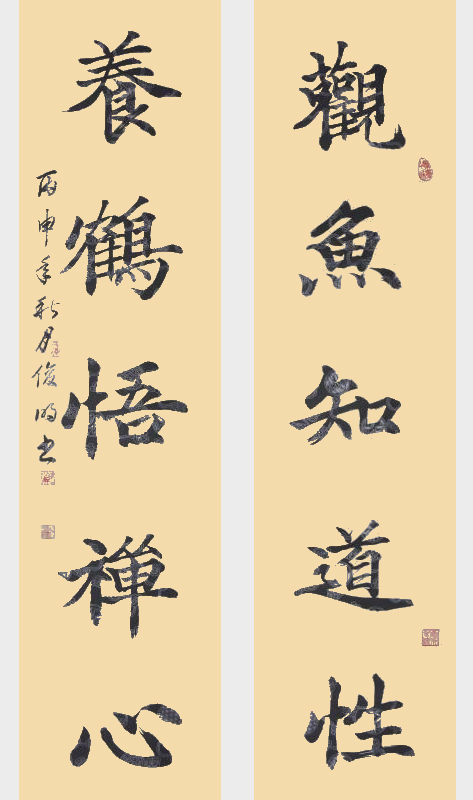 觀魚知道性
養鶴悟禪心
丙申年秋月俊明書